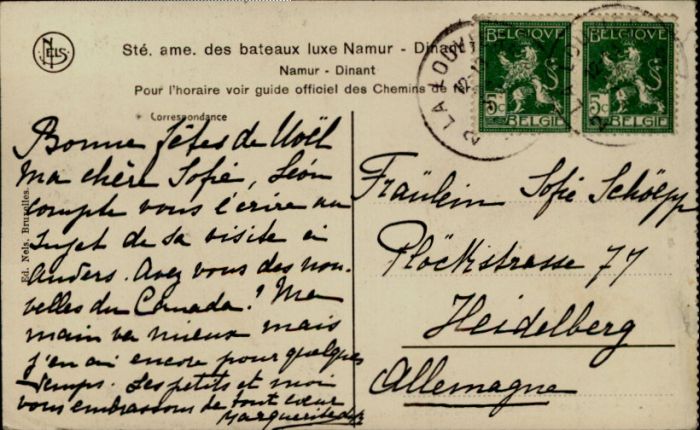 NELS
Sté. ame. des bateaux luxe Namur - Dinant
Namur - Dinant
Pour l'horaire voir guide officiel des Chemins de
Correspondance
Ed. Nels, Bruxelles.
BELGIQUE
5c
BELGIË
BELGIQUE
5c
BELGIË
LA LOUV
Bonne fêtes de Noël
ma chère Sofie, Léon
compte vous l'écrire au
sujet de sa visite à
Anders. Avez vous des nou-
velles du Canada? Ma
main va mieux mais
j'en ai encore pour quelques
temps. Les petits et moi
vous embrassons de tout cœur
Marguerite
Fräulein Sofie Schöepp
Plöckstrasse 77
Heidelberg
Allemagne